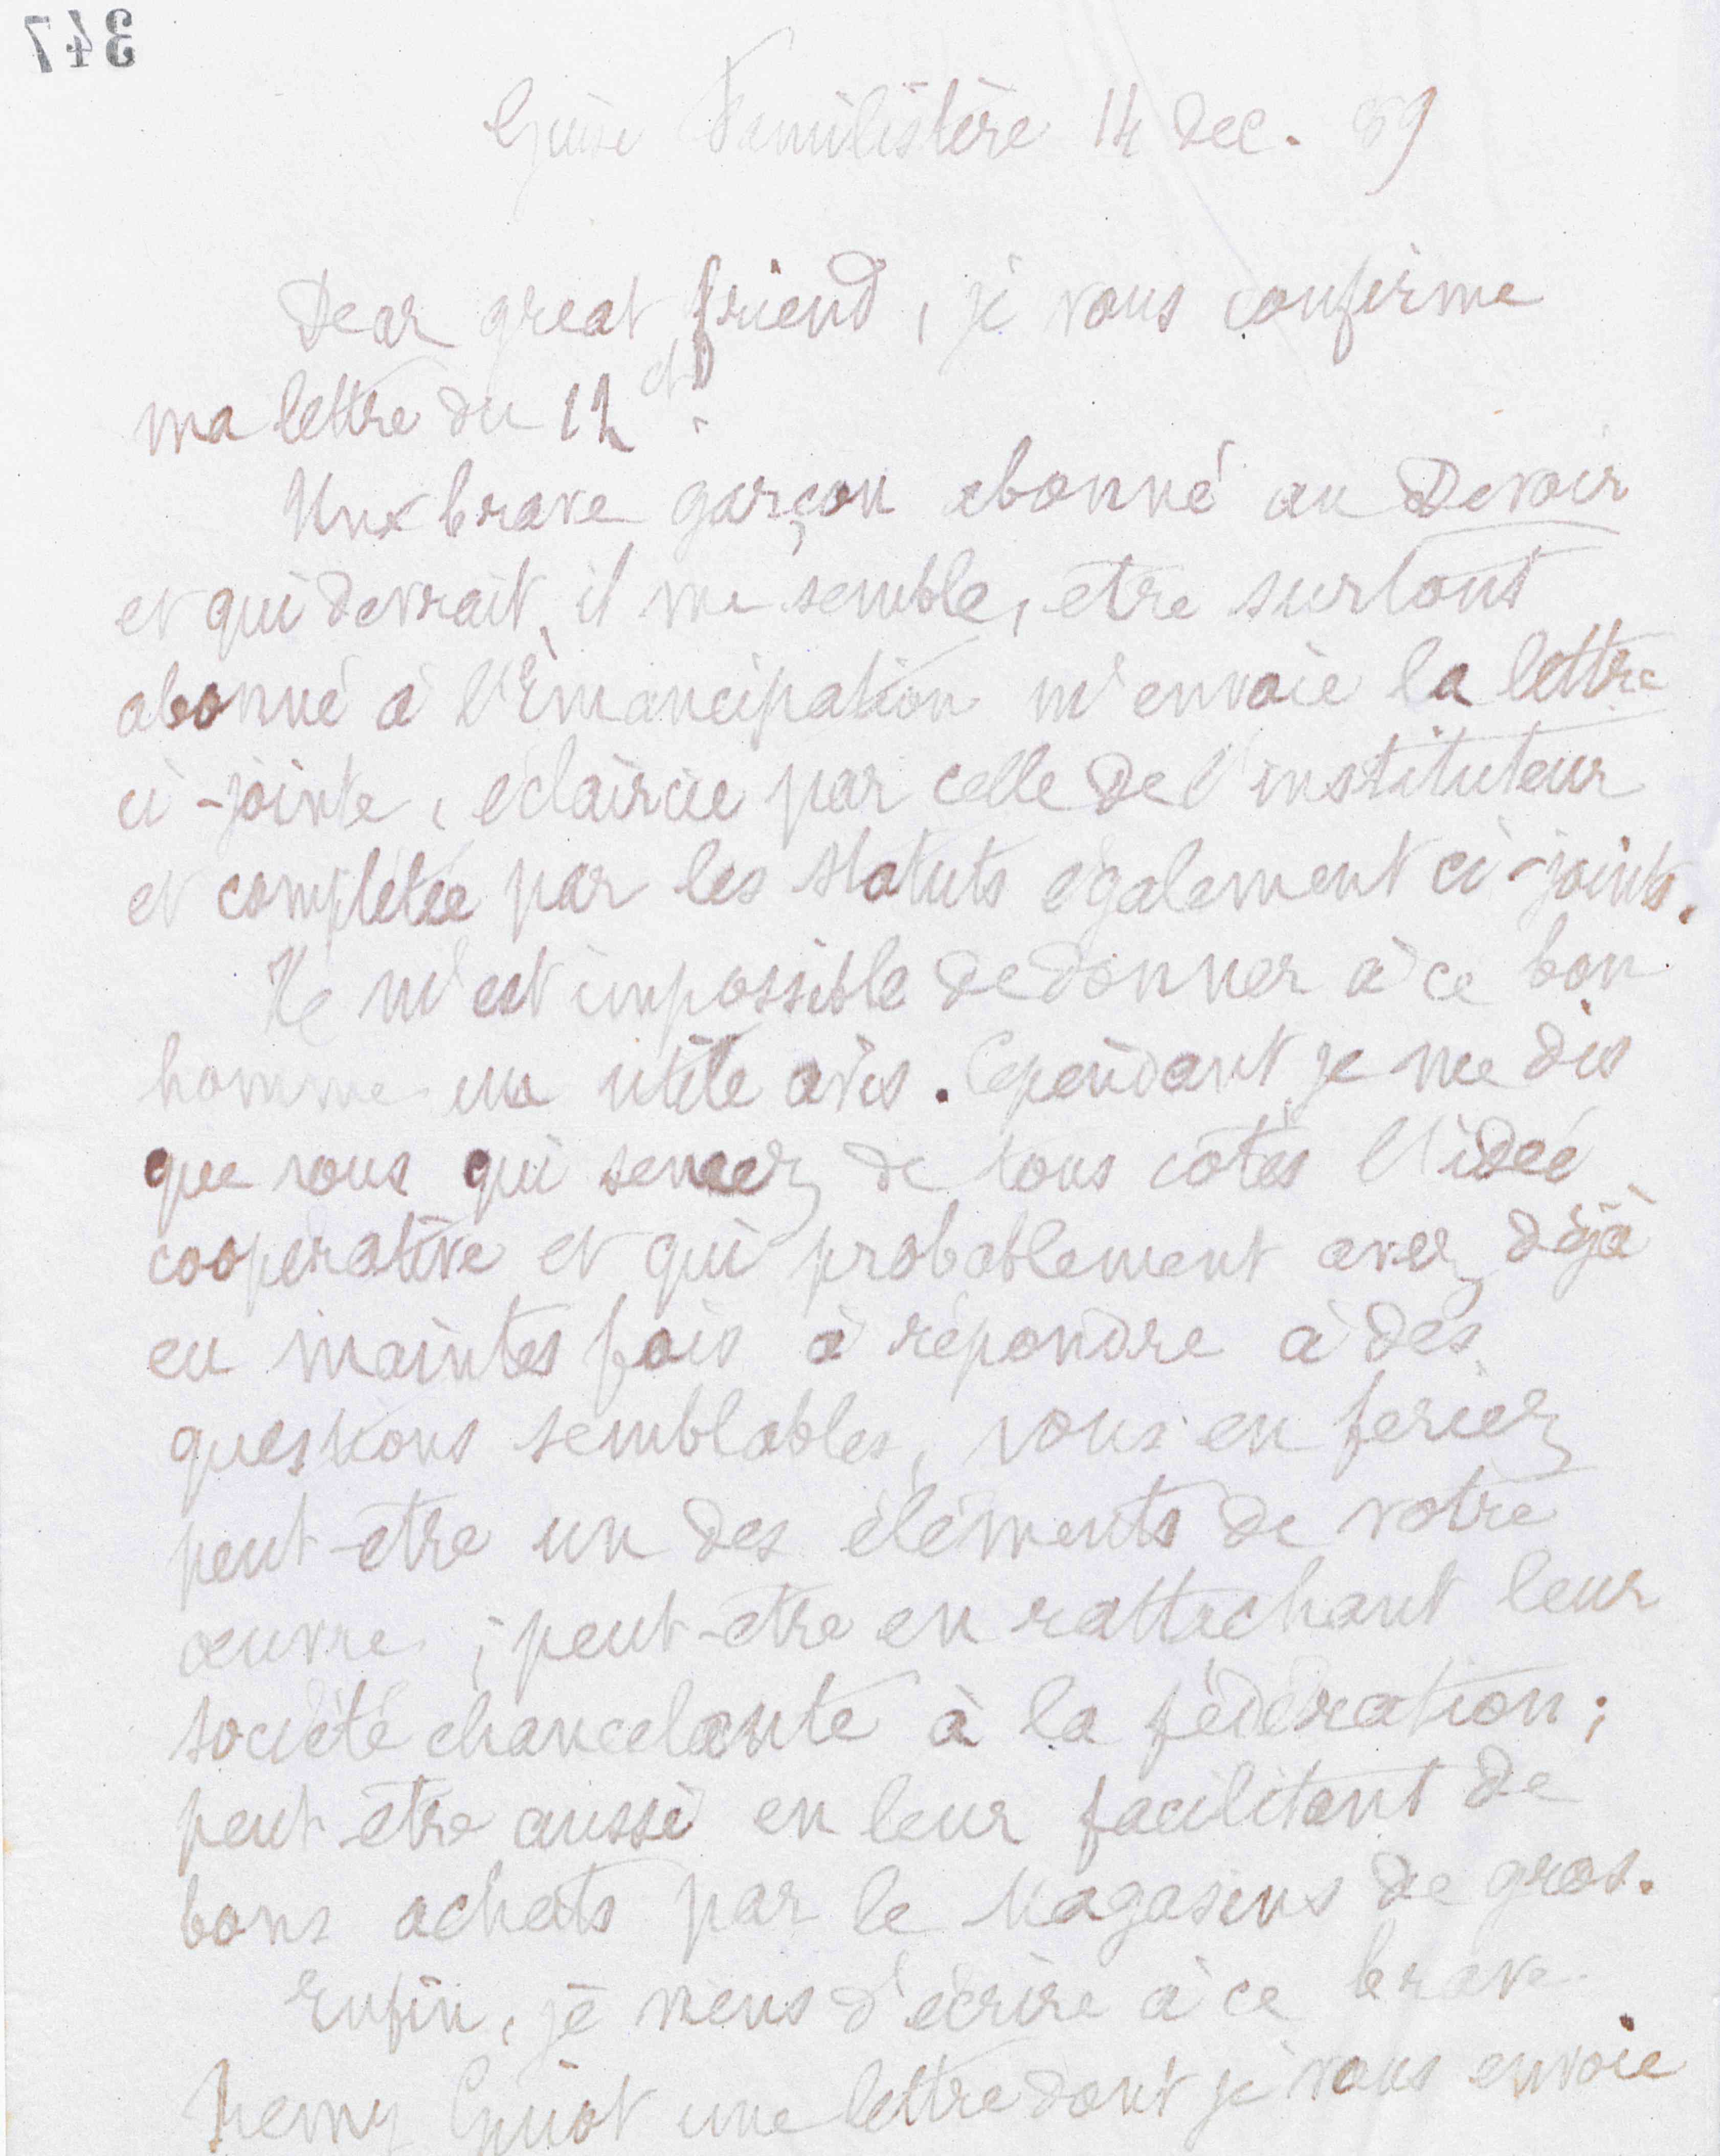 347
Guise Familistère 14 dec. 89
Dear great friend, je vous confirme
ma lettre du 12 ct.
Un brave garçon abonné au Devoir
et qui devrait, il me semble, etre surtout
abonné à l'Émancipation m'envoie la lettre
ci-jointe, éclaircie par celle de l'instituteur
et complétée par les statuts également ci-joints.
Il m'est impossible de donner à ce bon
homme un utile avis. Cependant je me dis
que vous qui semez de tous cotés l'idée
coopérative et qui probablement avez déjà
eu maintes fois à répondre à des
questions semblables, vous en feriez
peut-etre un des éléments de votre
œuvre ; peut-etre en rattachant leur
société chancelante à la fédération ;
peut-etre aussi en leur facilitant de
bons achats par le Magasins de gros.
Enfin, je viens d'écrire à ce brave
Remy Guiot une lettre dont je vous envoie